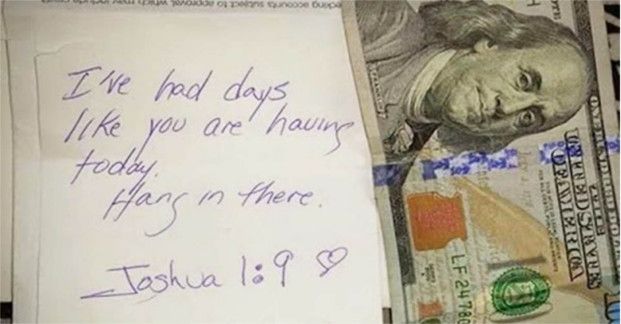 ducking accounts subject to approval, which may include credit
I've had days
like you are having
today.
Hang in there.
Joshua 1:9 ♡
FRANKLIN
UNITED STATES
OF AMERICA
LF 24780